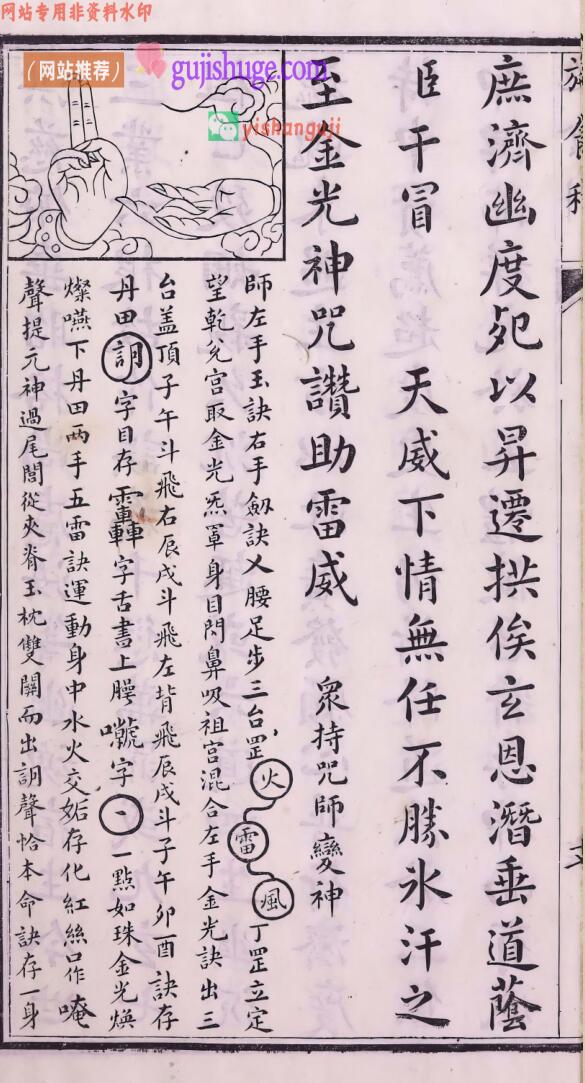 网站专用非资料水印
(网站推荐)
gujishuge.com
yishanguji
庶濟幽度死以昇遷拱俟玄恩潛垂道蔭
臣干冒 天威下情無任不勝氷汗之
至金光神咒讚助雷威 衆持咒師變神
師左手玉訣右手劍訣乂腰足步三台罡 火 雷 風 丁罡立定
望乾兌宮取金光炁罩身目閉鼻吸祖宮混合左手金光訣出三
台盖頂子午斗飛右辰戌斗飛左背飛辰戌斗子午卯酉訣存
丹田 字目存 字舌書上腭 字 丶 一點如珠金光焕
燦嚥下丹田兩手五雷訣運動身中水火交姤存化紅絲口作唵
聲提元神過尾閭從夾脊玉枕雙關而出 聲恰本命訣存一身